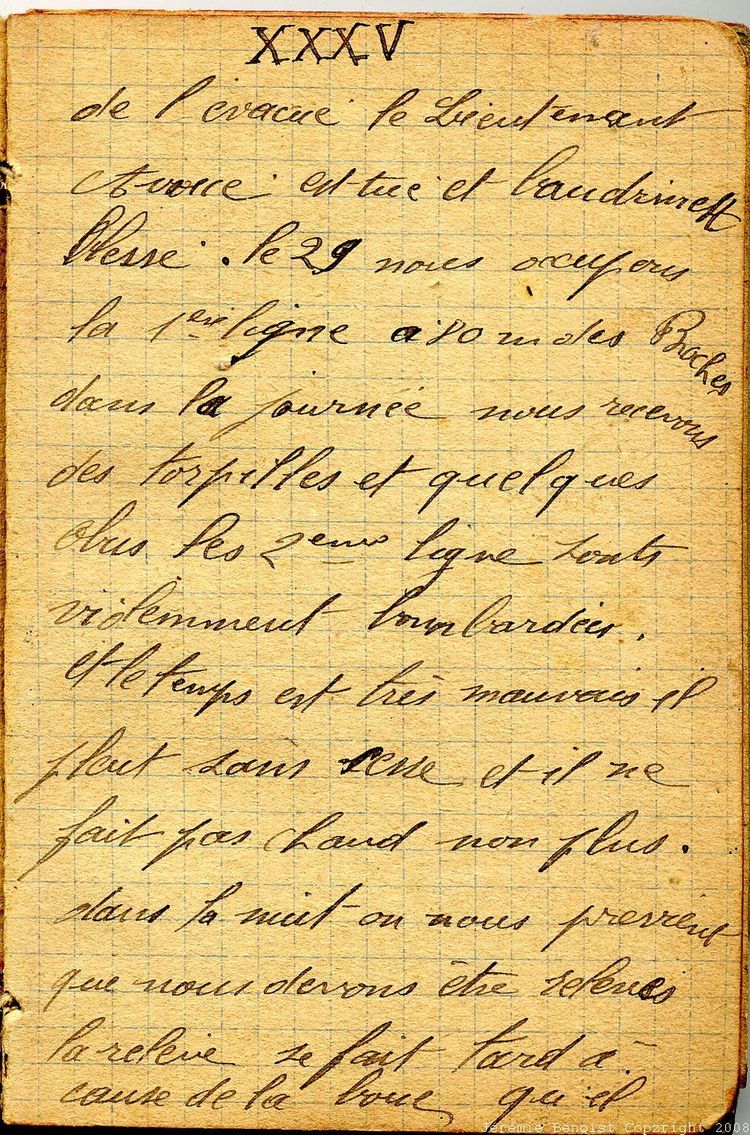 XXXV
de l'évacué le Lieutenant
est tué et Baudrinett
blessé. le 29 nous occupons
la 1ere ligne a 80 m des Boches
dans la journée nous recevons
des torpilles et quelques
obus les 2eme ligne sonts
violemment bombardées.
et le temps est très mauvais il
pleut sans cesse et il ne
fait pas chaud non plus.
dans la nuit on nous previent
que nous devons être relevés
la relève se fait tard à
cause de la boue qu'il
Jeremie Benoist Copyright 2008